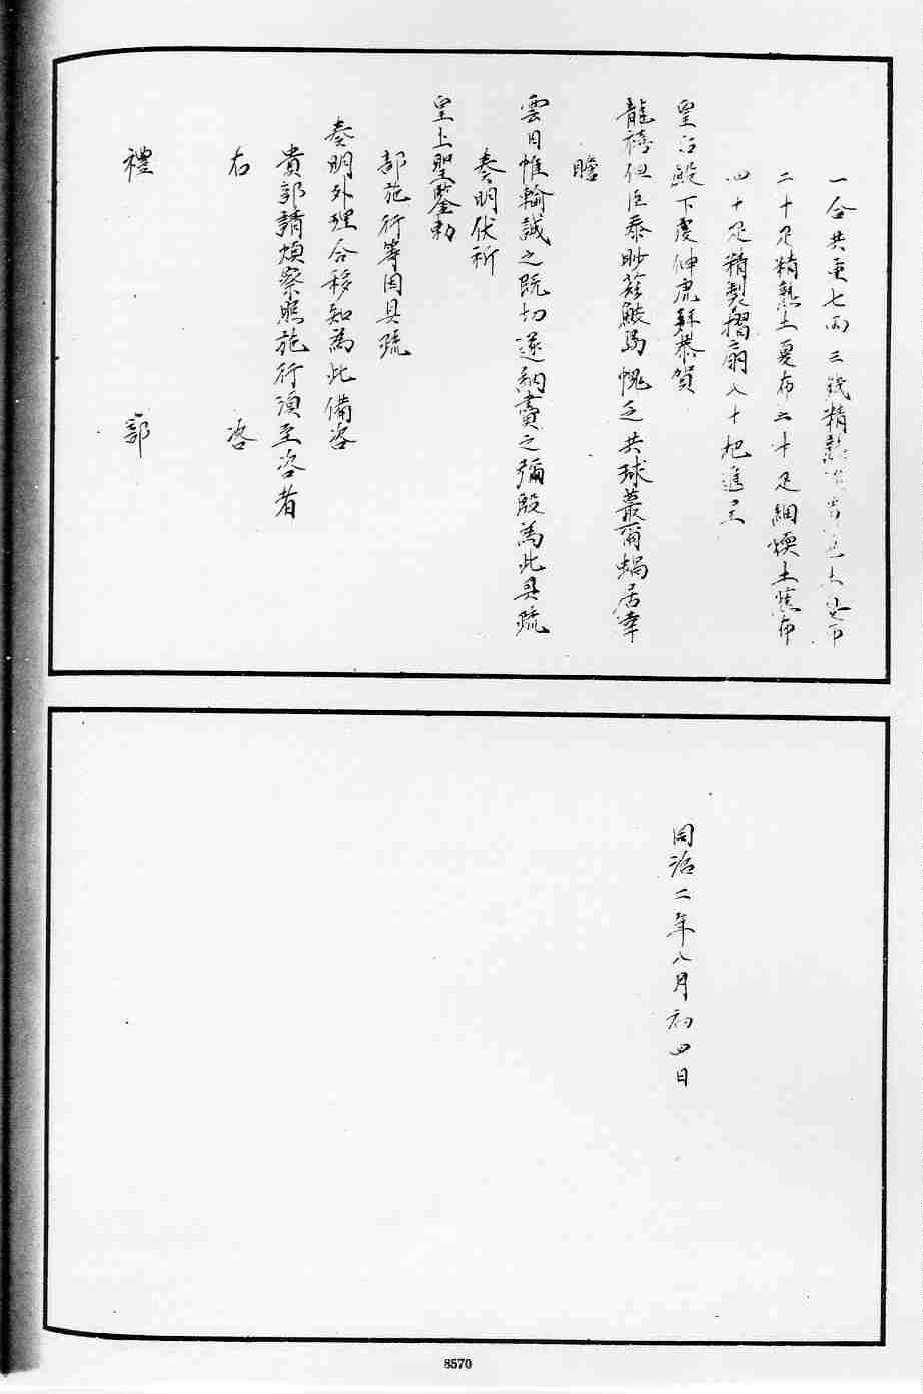 一合共重七兩三錢精熟
二十疋精熟土夏布二十疋細嫩土蕉布
四十疋精製摺扇八十把進呈
皇后殿下虔伸虎拜恭賀
龍禧但臣泰眇茲鮫島愧乏共球蕞爾蝸居幸
瞻
雲日惟輸誠之既切遂納賮之彌殷為此具疏
奏明伏祈
皇上聖鑒勅
部施行等因具疏
奏明外理合移知為此備咨
貴部請煩察照施行須至咨者
右 咨
禮 部
同治二年八月初四日
8570